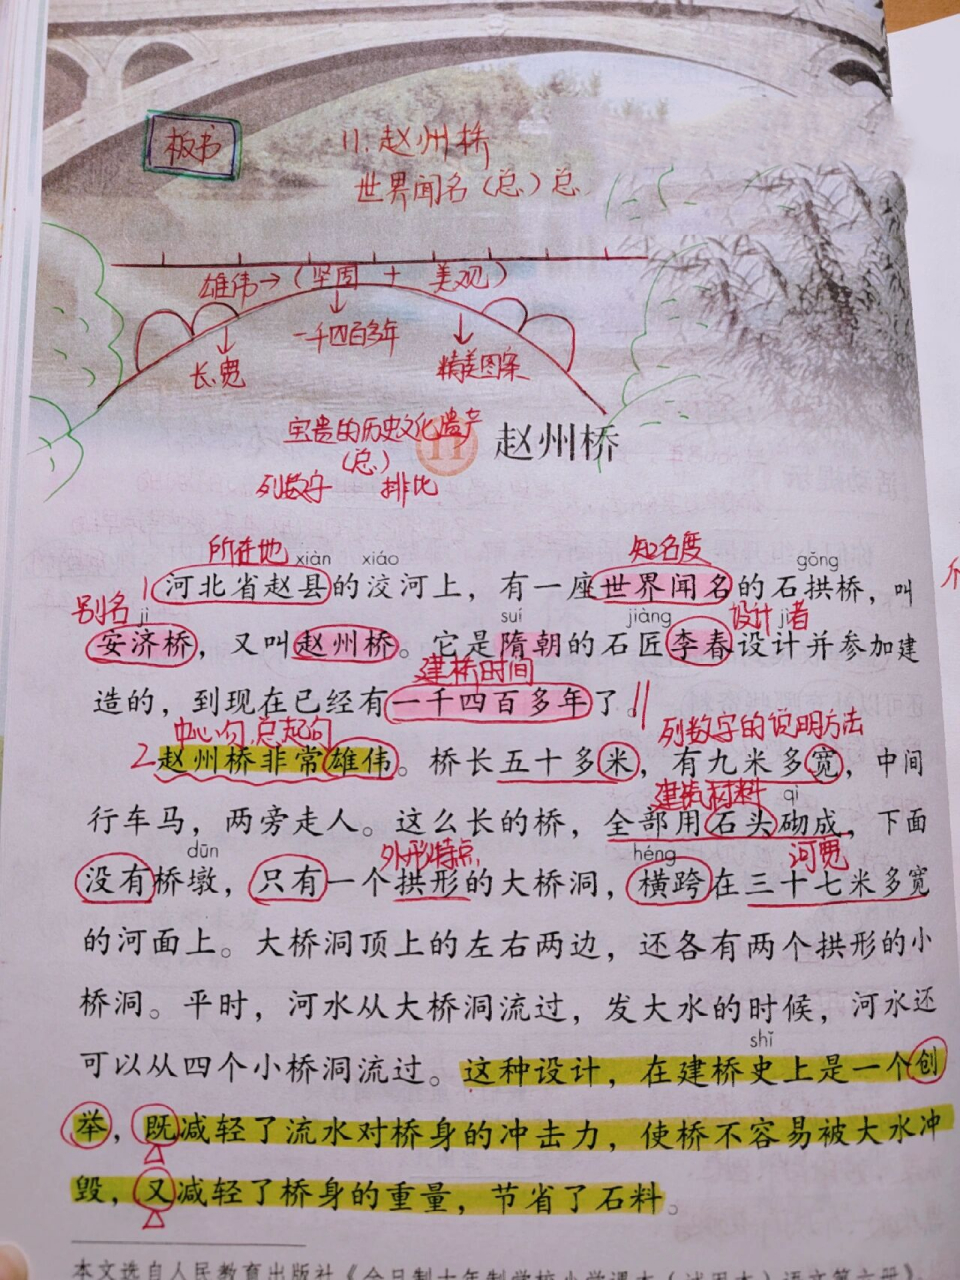 板书
11.赵州桥
世界闻名（总）总
雄伟→（坚固 + 美观）
一千四百多年
长.宽
精美图案
宝贵的历史文化遗产
（总）
11 赵州桥
列数字 排比
所在地 xiàn xiáo 知名度 gōng
1 河北省赵县的洨河上，有一座世界闻名的石拱桥，叫
别名 jì suí jiàng 设计者
安济桥，又叫赵州桥。它是隋朝的石匠李春设计并参加建
建桥时间
造的，到现在已经有一千四百多年了。
中心句 总起句 列数字的说明方法
2 赵州桥非常雄伟。桥长五十多米，有九米多宽，中间
建筑材料 qì
行车马，两旁走人。这么长的桥，全部用石头砌成，下面
dūn 外形特点 héng 河宽
没有桥墩，只有一个拱形的大桥洞，横跨在三十七米多宽
的河面上。大桥洞顶上的左右两边，还各有两个拱形的小
桥洞。平时，河水从大桥洞流过，发大水的时候，河水还
shǐ
可以从四个小桥洞流过。这种设计，在建桥史上是一个创
举，既减轻了流水对桥身的冲击力，使桥不容易被大水冲
毁，又减轻了桥身的重量，节省了石料。
本文选自人民教育出版社《全日制十年制学校小学课本（试用本）语文第六册》